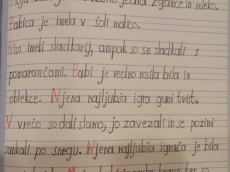 jedla žgance in mleko.
Babica je imela v šoli malico.
Niso imeli sladkarij, ampak so se sladkali s
pomarančami. Babi je vedno nosila krila in
oblekce. Njena najljubša igra gumi tvist.
V vrečo so dali slamo, jo zavezali in se pozimi
sankali po snegu. Njena najljubša igrača je bila